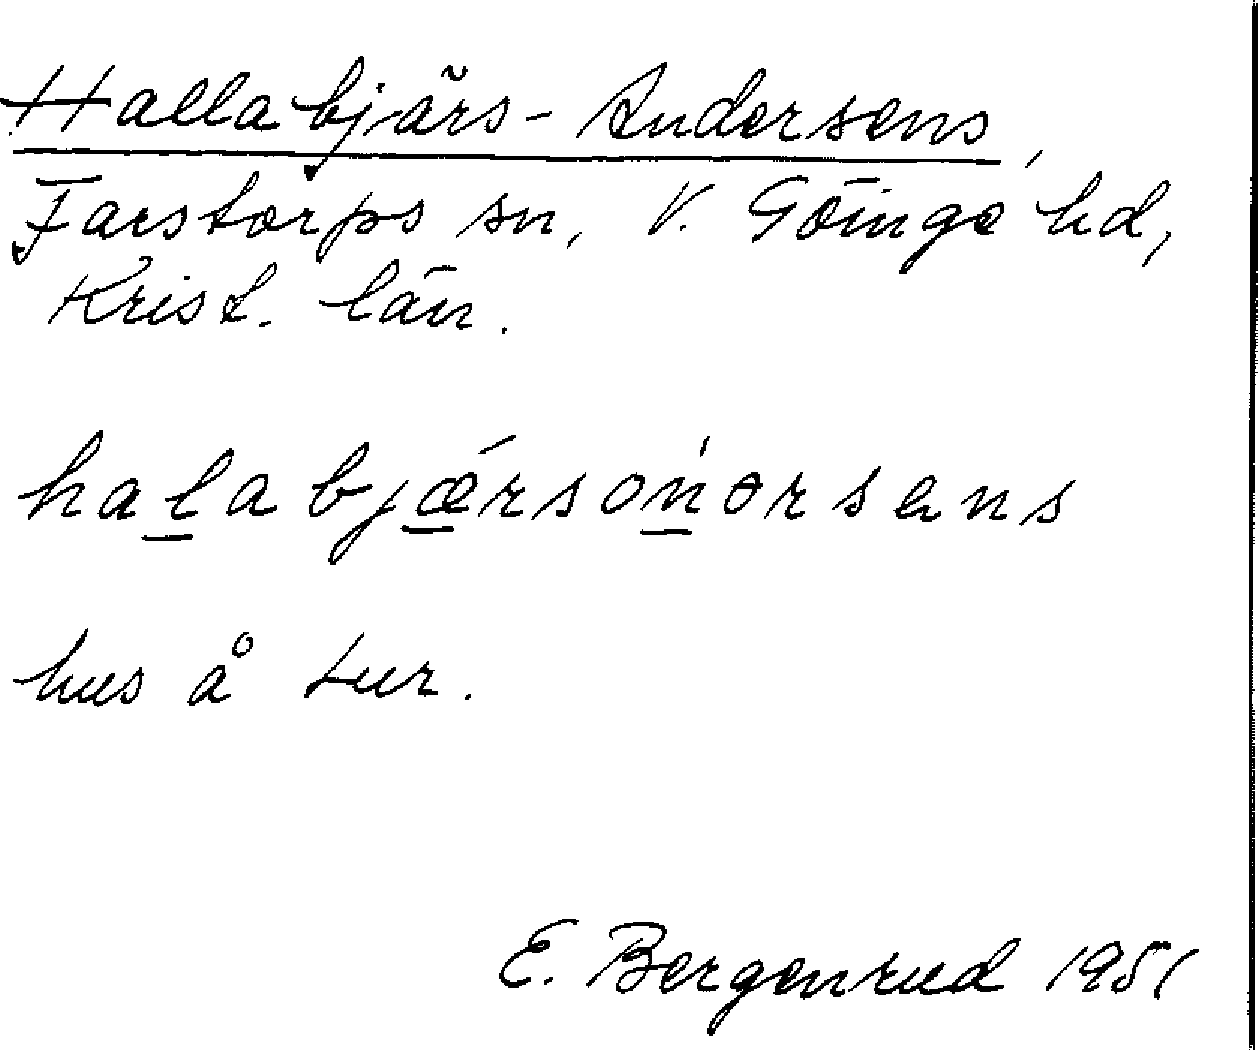 Hallabjärs-Andersens,
Farstorps sn, V. Göinge hd,
Krist. län.
halabjǽrsońərsens
hus å tur.
E. Bergenrud 1951